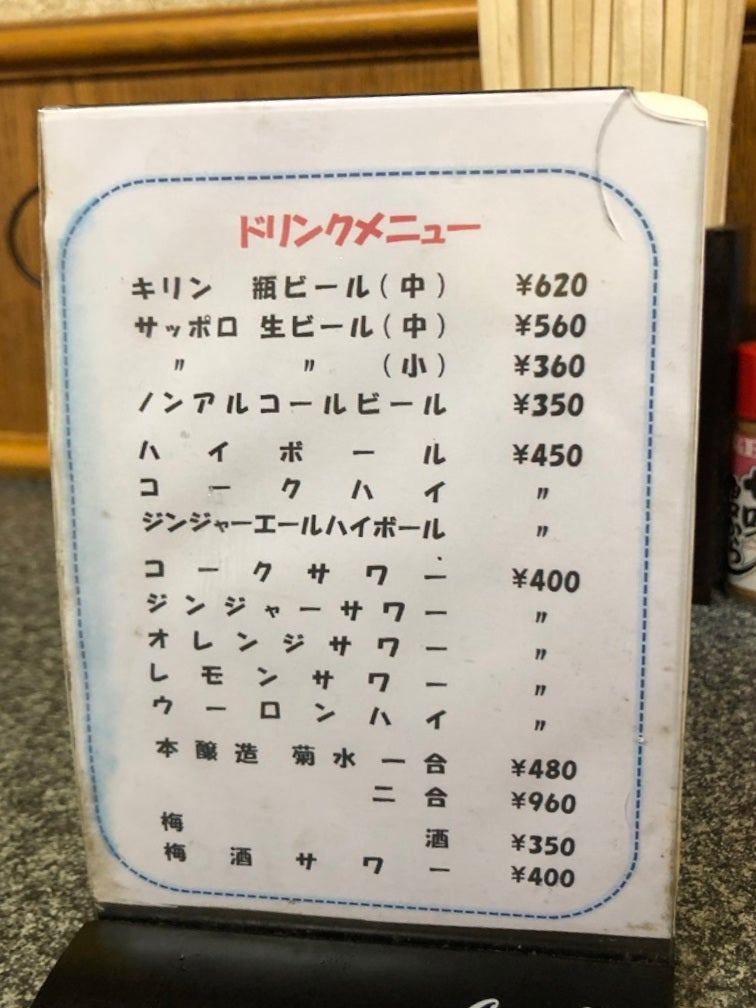 ドリンクメニュー
キリン 瓶ビール(中) ¥620
サッポロ 生ビール(中) ¥560
〃 〃 (小) ¥360
ノンアルコールビール ¥350
ハイボール ¥450
コークハイ 〃
ジンジャーエールハイボール 〃
コークサワー ¥400
ジンジャーサワー 〃
オレンジサワー 〃
レモンサワー 〃
ウーロンハイ 〃
本醸造 菊水 一合 ¥480
二合 ¥960
梅酒 ¥350
梅酒サワー ¥400